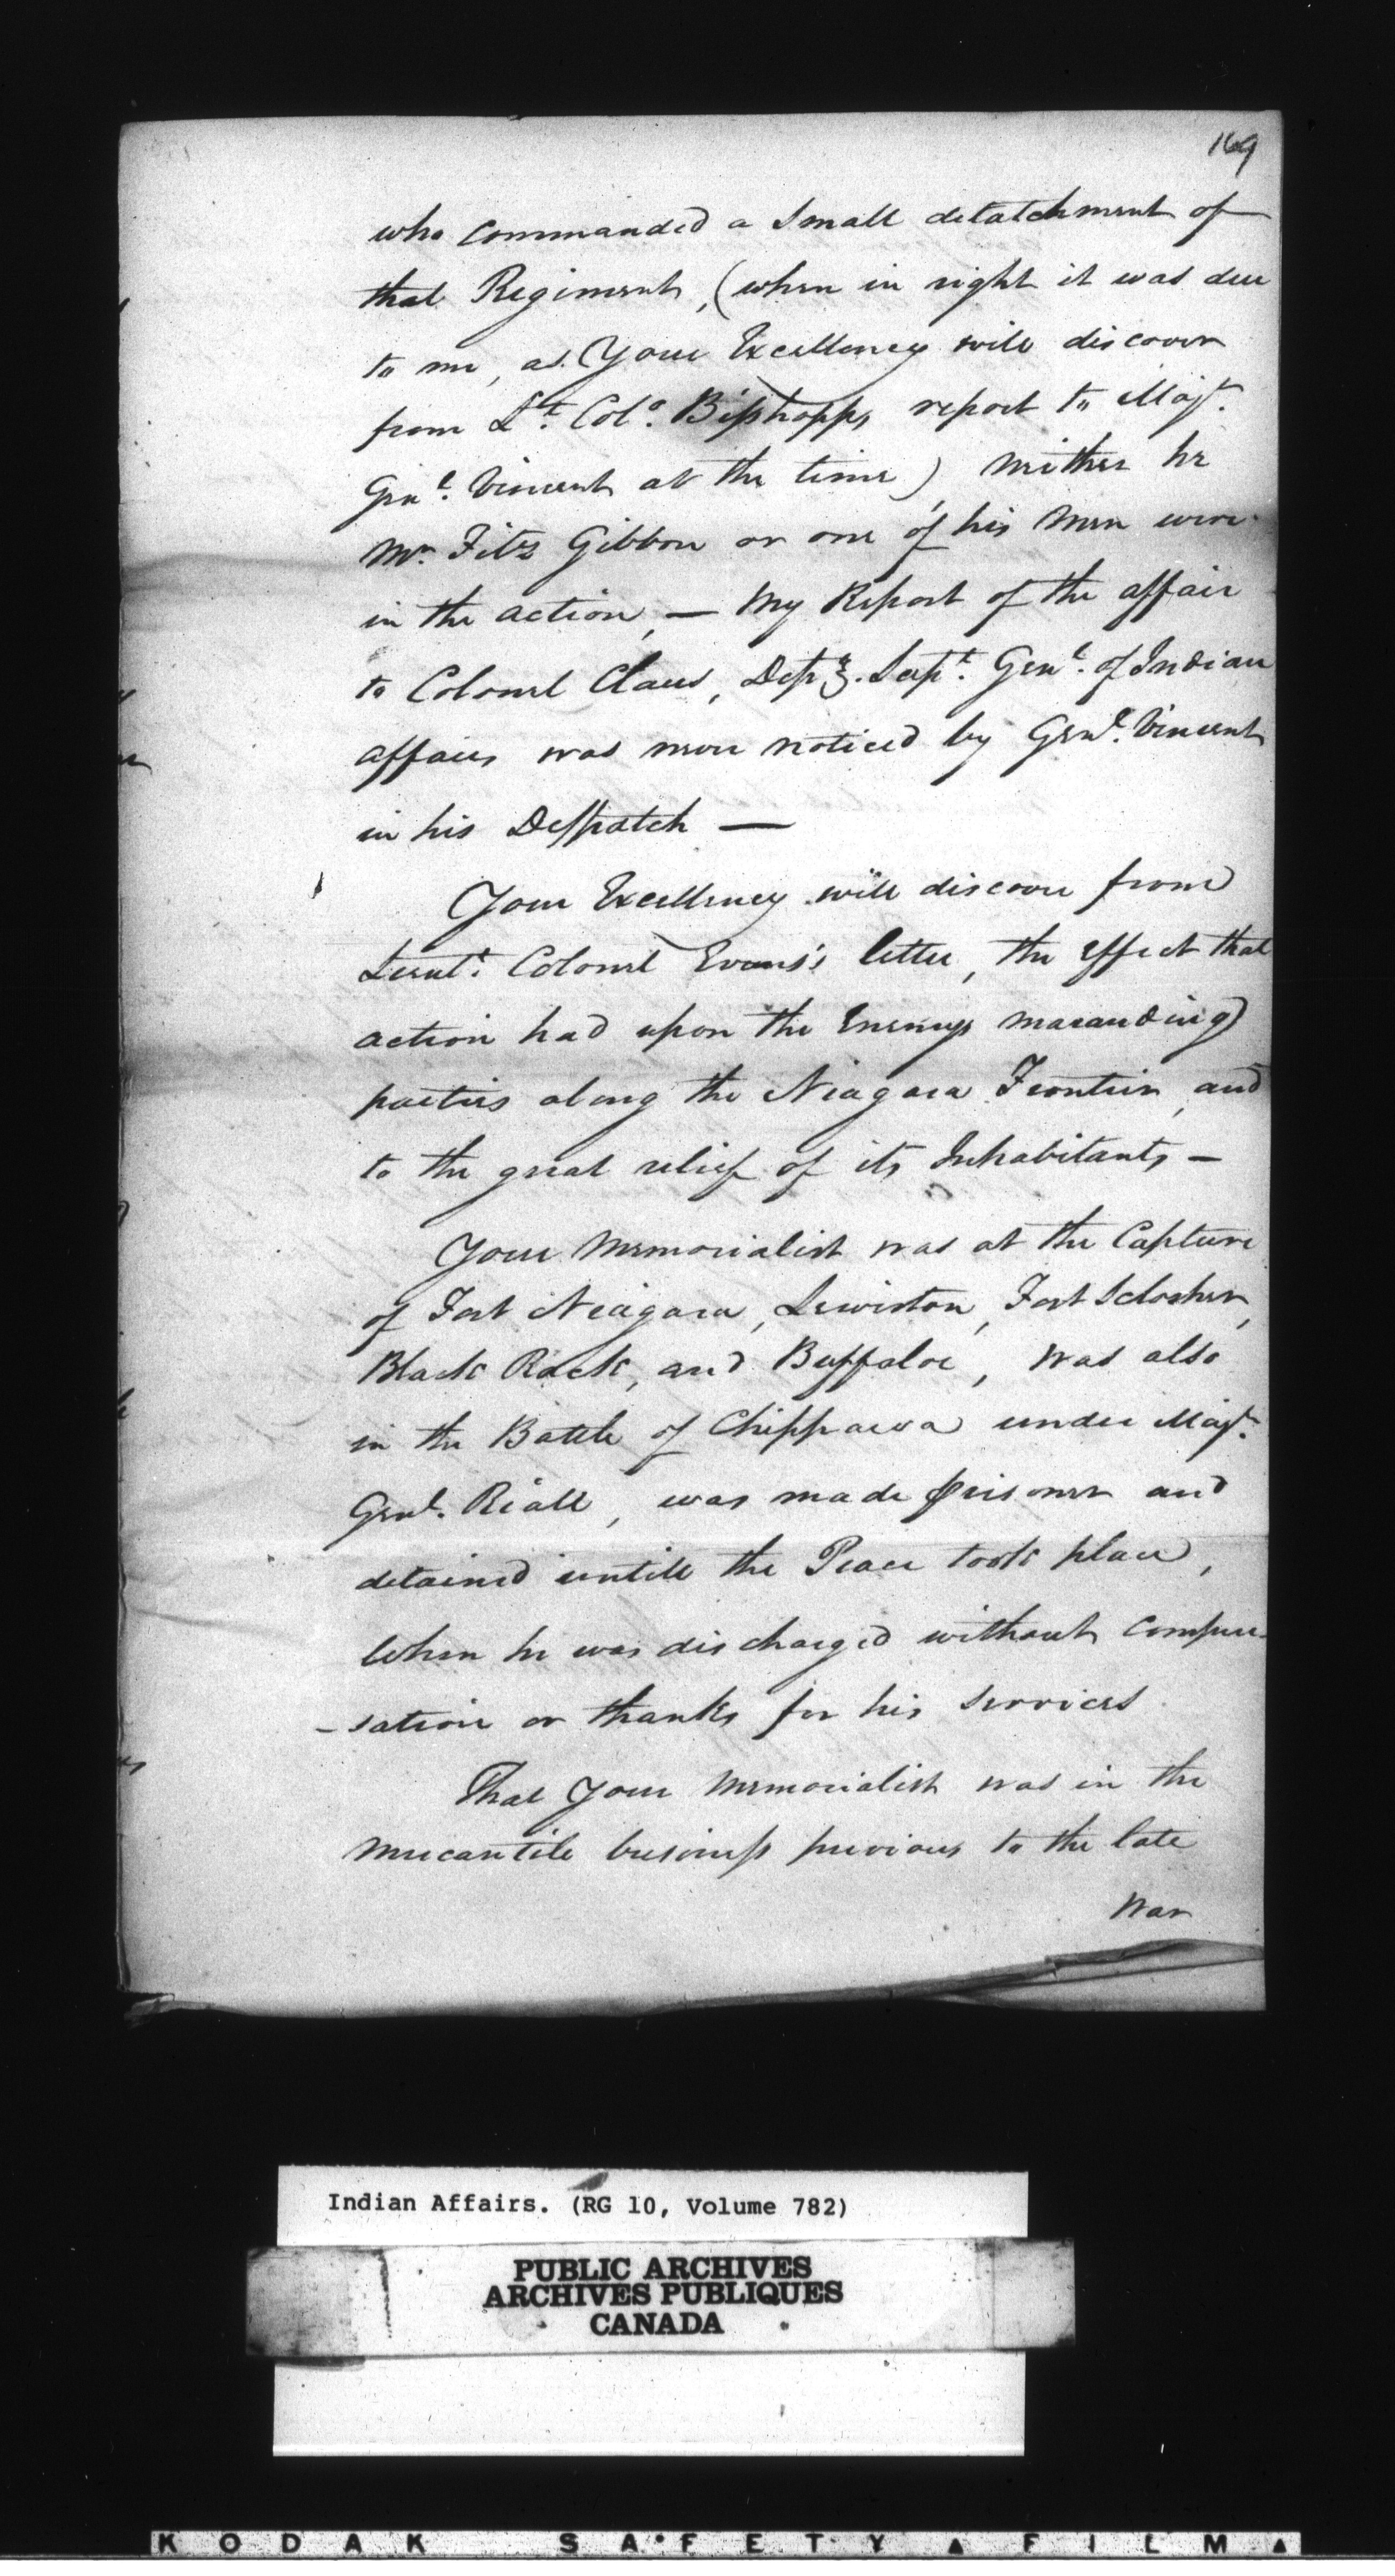 169
who commanded a Small detatchment of
that Regiment, (when in right it was due
to me, as Your Excellency will discover
from Lt. Colo. Bisshopps report to Majr.
Genl. Vincent at the time) neither he
Mr. Fitz Gibbon or one of his Men were
in the action, — My Report of the affair
to Colonel Claus, Depy. Supt. Genl. of Indian
affairs was never noticed by Genl. Vincent
in his Desspatch —
Your Excellency will discover from
Lieut. Colonel Evans's letter, the effect that
action had upon the Enemys marauding
parties along the Niagara Frontier, and
to the great relief of its Inhabitants —
Your Memorialist was at the Capture
of Fort Niagara, Lewiston, Fort Sclosher,
Black Rock, and Buffaloe, was also
in the Battle of Chippaewa under Majr.
Genl. Riall, was made prisoner and
detained untill the Peace took place,
When he was discharged without compen-
-sation or thanks for his Services
That Your Memorialist was in the
Mercantile business previous to the late
War
Indian Affairs. (RG 10, Volume 782)
PUBLIC ARCHIVES
ARCHIVES PUBLIQUES
CANADA
KODAK SAFETY FILM